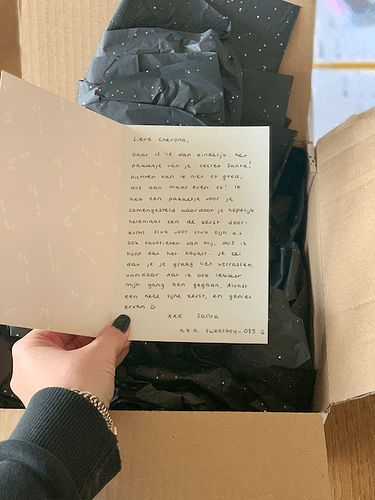 Lieve Cherona,
Daar is 'ie dan eindelijk: het
pakketje van je secret santa!
Dichten kan ik niet zo goed,
dus dan maar even zo! Ik
heb een pakketje voor je
samengesteld waardoor je hopelijk
helemaal de kerst door-
komt. Stuk voor stuk zijn dit
ook favorieten van mij, dus ik
hoop dat het bevalt. Je zei
dat je je graag liet verrassen,
vandaar dat ik ook lekker
mijn gang ben gegaan. Alvast
een hele fijne kerst, en geniet
ervan
xxx Santa
a.k.a. sweetboy-075